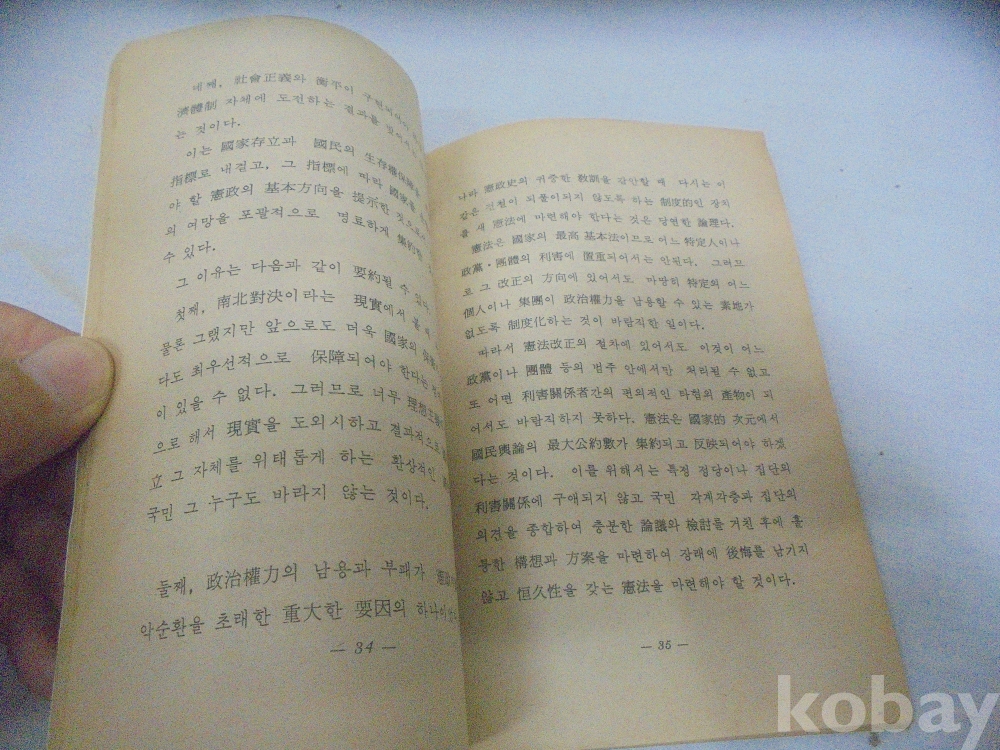 네째, 社會正義와 衡平이
濟體制 자체에 도전하는 결과를
는 것이다.
이는 國家存立과 國民의 生存權保障을
指標로 내걸고, 그 指標에 따라 國家를
야 할 憲政의 基本方向을 提示한 것으로서
의 여망을 포괄적으로 명료하게 集約
수 있다.
그 이유는 다음과 같이 要約될 수 있다.
첫째, 南北對決이라는 現實에서 볼 때
물론 그랬지만 앞으로도 더욱 國家의
다도 최우선적으로 保障되어야 한다는
이 있을 수 없다. 그러므로 너무 理想主義
으로 해서 現實을 도외시하고 결과적으로
立 그 자체를 위태롭게 하는 환상적인
국민 그 누구도 바라지 않는 것이다.
둘째, 政治權力의 남용과 부패가
악순환을 초래한 重大한 要因의 하나이
— 34 —
나마 憲政史의 귀중한 敎訓을 감안할 때 다시는 이
같은 전철이 되풀이되지 않도록 하는 制度的인 장치
를 새 憲法에 마련해야 한다는 것은 당연한 論理다.
憲法은 國家의 最高 基本法이므로 어느 特定人이나
政黨·團體의 利害에 置重되어서는 안된다. 그러므
로 그 改正의 方向에 있어서도 마땅히 特定의 어느
個人이나 集團이 政治權力을 남용할 수 있는 素地가
없도록 制度化하는 것이 바람직한 일이다.
따라서 憲法改正의 절차에 있어서도 이것이 어느
政黨이나 團體 등의 범주 안에서만 처리될 수 없고
또 어떤 利害關係者간의 편의적인 타협의 產物이 되
어서도 바람직하지 못하다. 憲法은 國家的 次元에서
國民輿論의 最大公約數가 集約되고 反映되어야 하겠
다는 것이다. 이를 위해서는 특정 정당이나 집단의
利害關係에 구애되지 않고 국민 각계각층과 집단의
의견을 종합하여 충분한 論議와 檢討를 거친 후에 훌
륭한 構想과 方案을 마련하여 장래에 後悔를 남기지
않고 恒久性을 갖는 憲法을 마련해야 할 것이다.
— 35 —
kobay